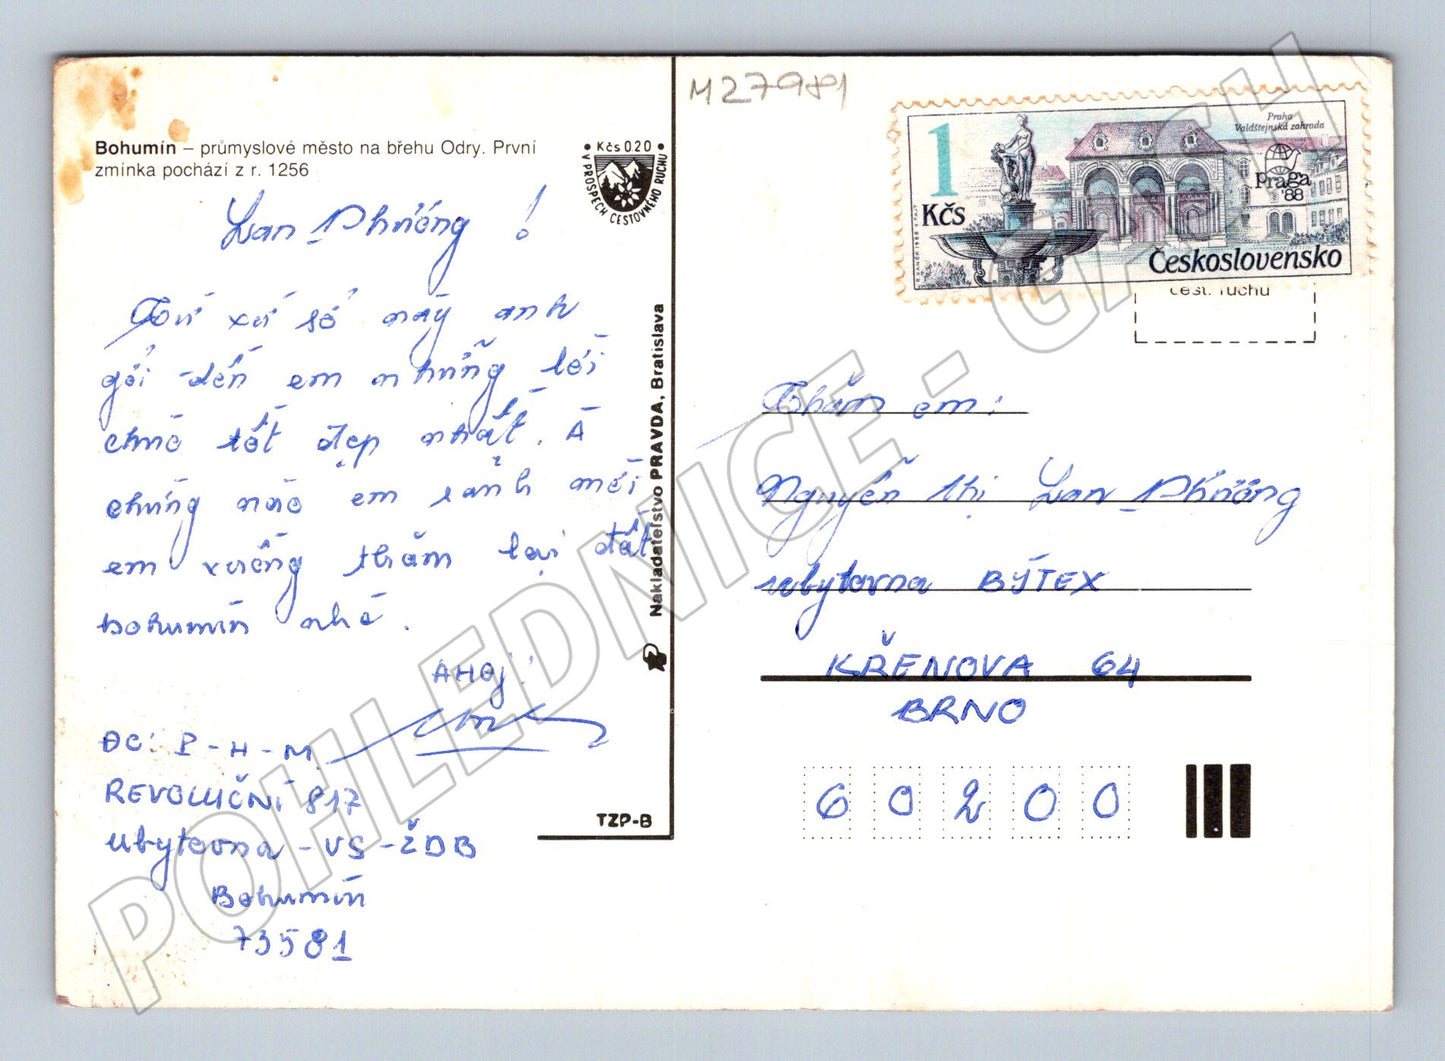 M27981
Bohumín – průmyslové město na břehu Odry. První
zmínka pochází z r. 1256
• Kčs 0.20 •
V PROSPĚCH CESTOVNÉHO RUCHU
Lan Phương !
Từ xứ sở này anh
gởi đến em những lời
chúc tốt đẹp nhất. À
chừng nào em rảnh mời
em xuống thăm lại đất
bohumín nhé.
AHOJ!
ĐC: P-H-M
REVOLUČNÍ 817
ubytovna - VS - ŽDB
Bohumín
73581
Nakladateľstvo PRAVDA, Bratislava
TZP-B
1
Kčs
Praha
Valdštejnská zahrada
Praga
88
Československo
cest. ruchu
Thăm em:
Nguyễn thị Lan Phương
ubytovna BYTEX
KŘENOVA 64
BRNO
60200
POHLEDNICE - CACH